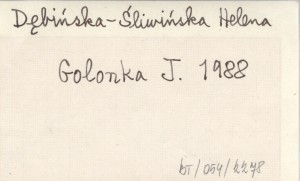 Dębińska-Śliwińska Helena
Golonka J. 1988
bT/054/2278